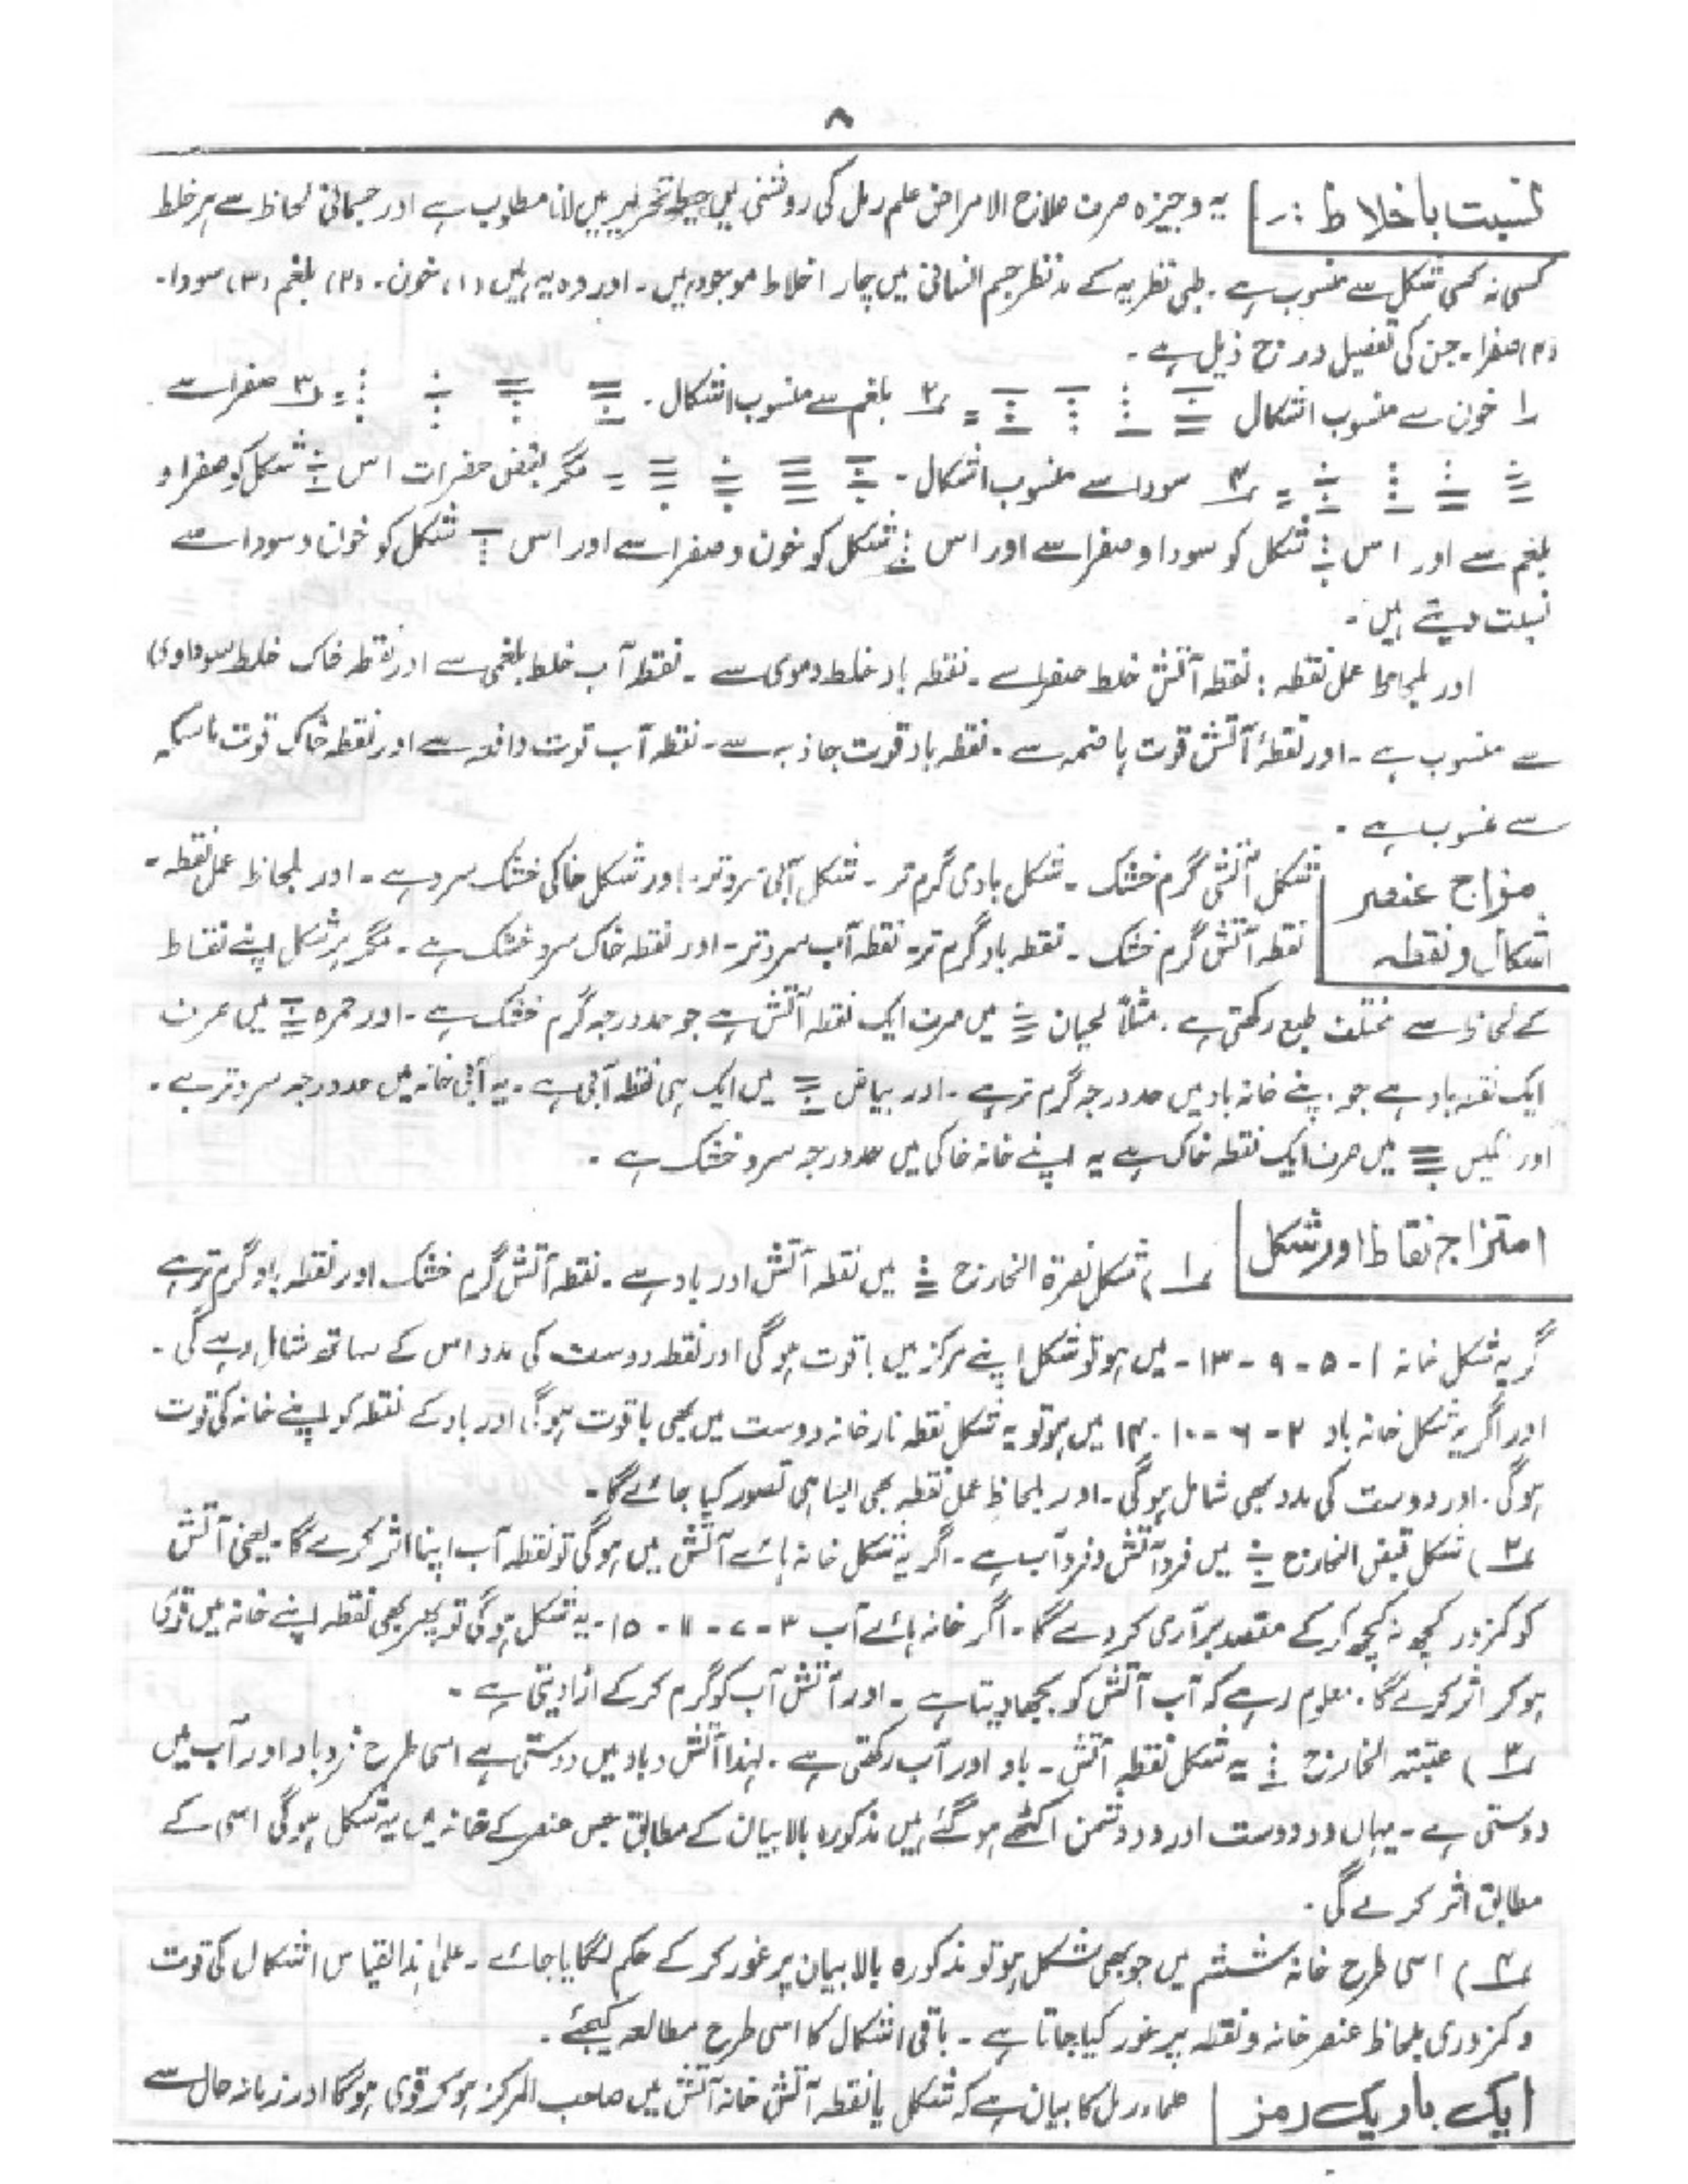 ۸
نسبت باخلاط :۔ یہ وجیزہ صرف علاج الامراض علم رمل کی روشنی میں احیطہ تحریر میں لانا مطلوب ہے اور جسمانی لحاظ سے ہر خلط
کسی نہ کسی شکل سے منسوب ہے ۔ طبی نظریہ کے مدنظر جسم انسانی میں چار اخلاط موجود ہیں ۔ اور وہ یہ ہیں (۱) خون ۔ (۲) بلغم (۳) سودا ۔
(۴) صفرا ۔ جن کی تفصیل درج ذیل ہے ۔
۱ خون سے منسوب اشکال = ۲ بلغم سے منسوب اشکال ۔ = ۳ صفرا سے
= ۴ سودا سے منسوب اشکال ۔ = مگر بعض حضرات اس شکل کو صفرا و
بلغم سے اور اس شکل کو سودا و صفرا سے اور اس شکل کو خون و صفرا سے اور اس شکل کو خون و سودا سے
نسبت دیتے ہیں ۔
اور بلحاظ عمل نقطہ : نقطہ آتش خلط صفرا سے ۔ نقطہ باد خلط دموی سے ۔ نقطہ آب خلط بلغمی سے اور نقطہ خاک خلط سوداوی
سے منسوب ہے ۔ اور نقطۂ آتش قوت ہاضمہ سے ۔ نقطہ باد قوت جاذبہ سے ۔ نقطہ آب قوت دافعہ سے اور نقطہ خاک قوت ماسکہ
سے منسوب ہے ۔
مزاج عنصر اشکال و نقطہ
شکل آتشی گرم خشک ۔ شکل بادی گرم تر ۔ شکل آبی سرد تر ۔ اور شکل خاکی خشک سرد ہے ۔ اور بلحاظ عمل نقطہ ۔
نقطہ آتش گرم خشک ۔ نقطہ باد گرم تر ۔ نقطہ آب سرد تر ۔ اور نقطہ خاک سرد خشک ہے ۔ مگر ہر شکل اپنے نقاط
کے لحاظ سے مختلف طبع رکھتی ہے ۔ مثلاً لحیان میں صرف ایک نقطہ آتش ہے جو حد درجہ گرم خشک ہے ۔ اور حمرہ میں صرف
ایک نقطہ باد ہے جو اپنے خانہ باد میں حد درجہ گرم تر ہے ۔ اور بیاض میں ایک ہی نقطہ آبی ہے ۔ یہ آبی خانہ میں حد درجہ سرد تر ہے ۔
اور میں صرف ایک نقطہ خاک ہے یہ اپنے خانہ خاکی میں حد درجہ سرد خشک ہے ۔
امتزاج نقاط اور شکل ۱) شکل نصرۃ الخارج میں نقطہ آتش اور باد ہے ۔ نقطہ آتش گرم خشک اور نقطہ باد گرم تر ہے
گر یہ شکل خانہ ۱ - ۵ - ۹ - ۱۳ - میں ہو تو شکل اپنے مرکز میں باقوت ہو گی اور نقطہ دوست کی مدد اس کے ساتھ شامل رہے گی ۔
اور اگر یہ شکل خانہ باد ۲ - ۶ - ۱۰ - ۱۴ میں ہو تو یہ شکل نقطہ نار خانہ دوست میں بھی باقوت ہو گا اور باد کے نقطہ کو اپنے خانہ کی قوت
ہو گی ۔ اور دوست کی مدد بھی شامل ہو گی ۔ اور بلحاظ عمل نقطہ بھی ایسا ہی تصور کیا جائے گا ۔
۲) شکل قبض الخارج میں فرد آتش و فرد آب ہے ۔ اگر یہ شکل خانہ ہائے آتش میں ہو گی تو نقطہ آب اپنا اثر کرے گا ۔ یعنی آتش
کو کمزور کچھ نہ کچھ کر کے مقصد برآری کر دے گا ۔ اگر خانہ ہائے آب ۳ - ۷ - ۱۱ - ۱۵ - یہ شکل ہو گی تو پھر بھی نقطہ اپنے خانہ میں قوی
ہو کر اثر کرے گا ۔ معلوم رہے کہ آب آتش کو بجھا دیتا ہے ۔ اور آتش آب کو گرم کر کے اڑا دیتی ہے ۔
۳) عتبتہ الخارج یہ شکل نقطہ آتش ۔ باد اور آب رکھتی ہے ۔ لہذا آتش و باد میں دوستی ہے اسی طرح فرد باد اور آب میں
دوستی ہے ۔ یہاں دو دوست اور دو دشمن اکٹھے ہو گئے ہیں مذکورہ بالا بیان کے مطابق جس عنصر کے خانہ میں یہ شکل ہو گی اسی کے
مطابق اثر کرے گی ۔
۴) اسی طرح خانہ ششم میں جو بھی شکل ہو تو مذکورہ بالا بیان پر غور کر کے حکم لگایا جائے ۔ علیٰ ہذا القیاس اشکال کی قوت
و کمزوری بلحاظ عنصر خانہ و نقطہ پر غور کیا جاتا ہے ۔ باقی اشکال کا اسی طرح مطالعہ کیجئے ۔
ایک باریک رمز علماء رمل کا بیان ہے کہ شکل یا نقطہ آتش خانہ آتش میں صاحب المرکز ہو کر قوی ہو گا اور زبانہ حال سے